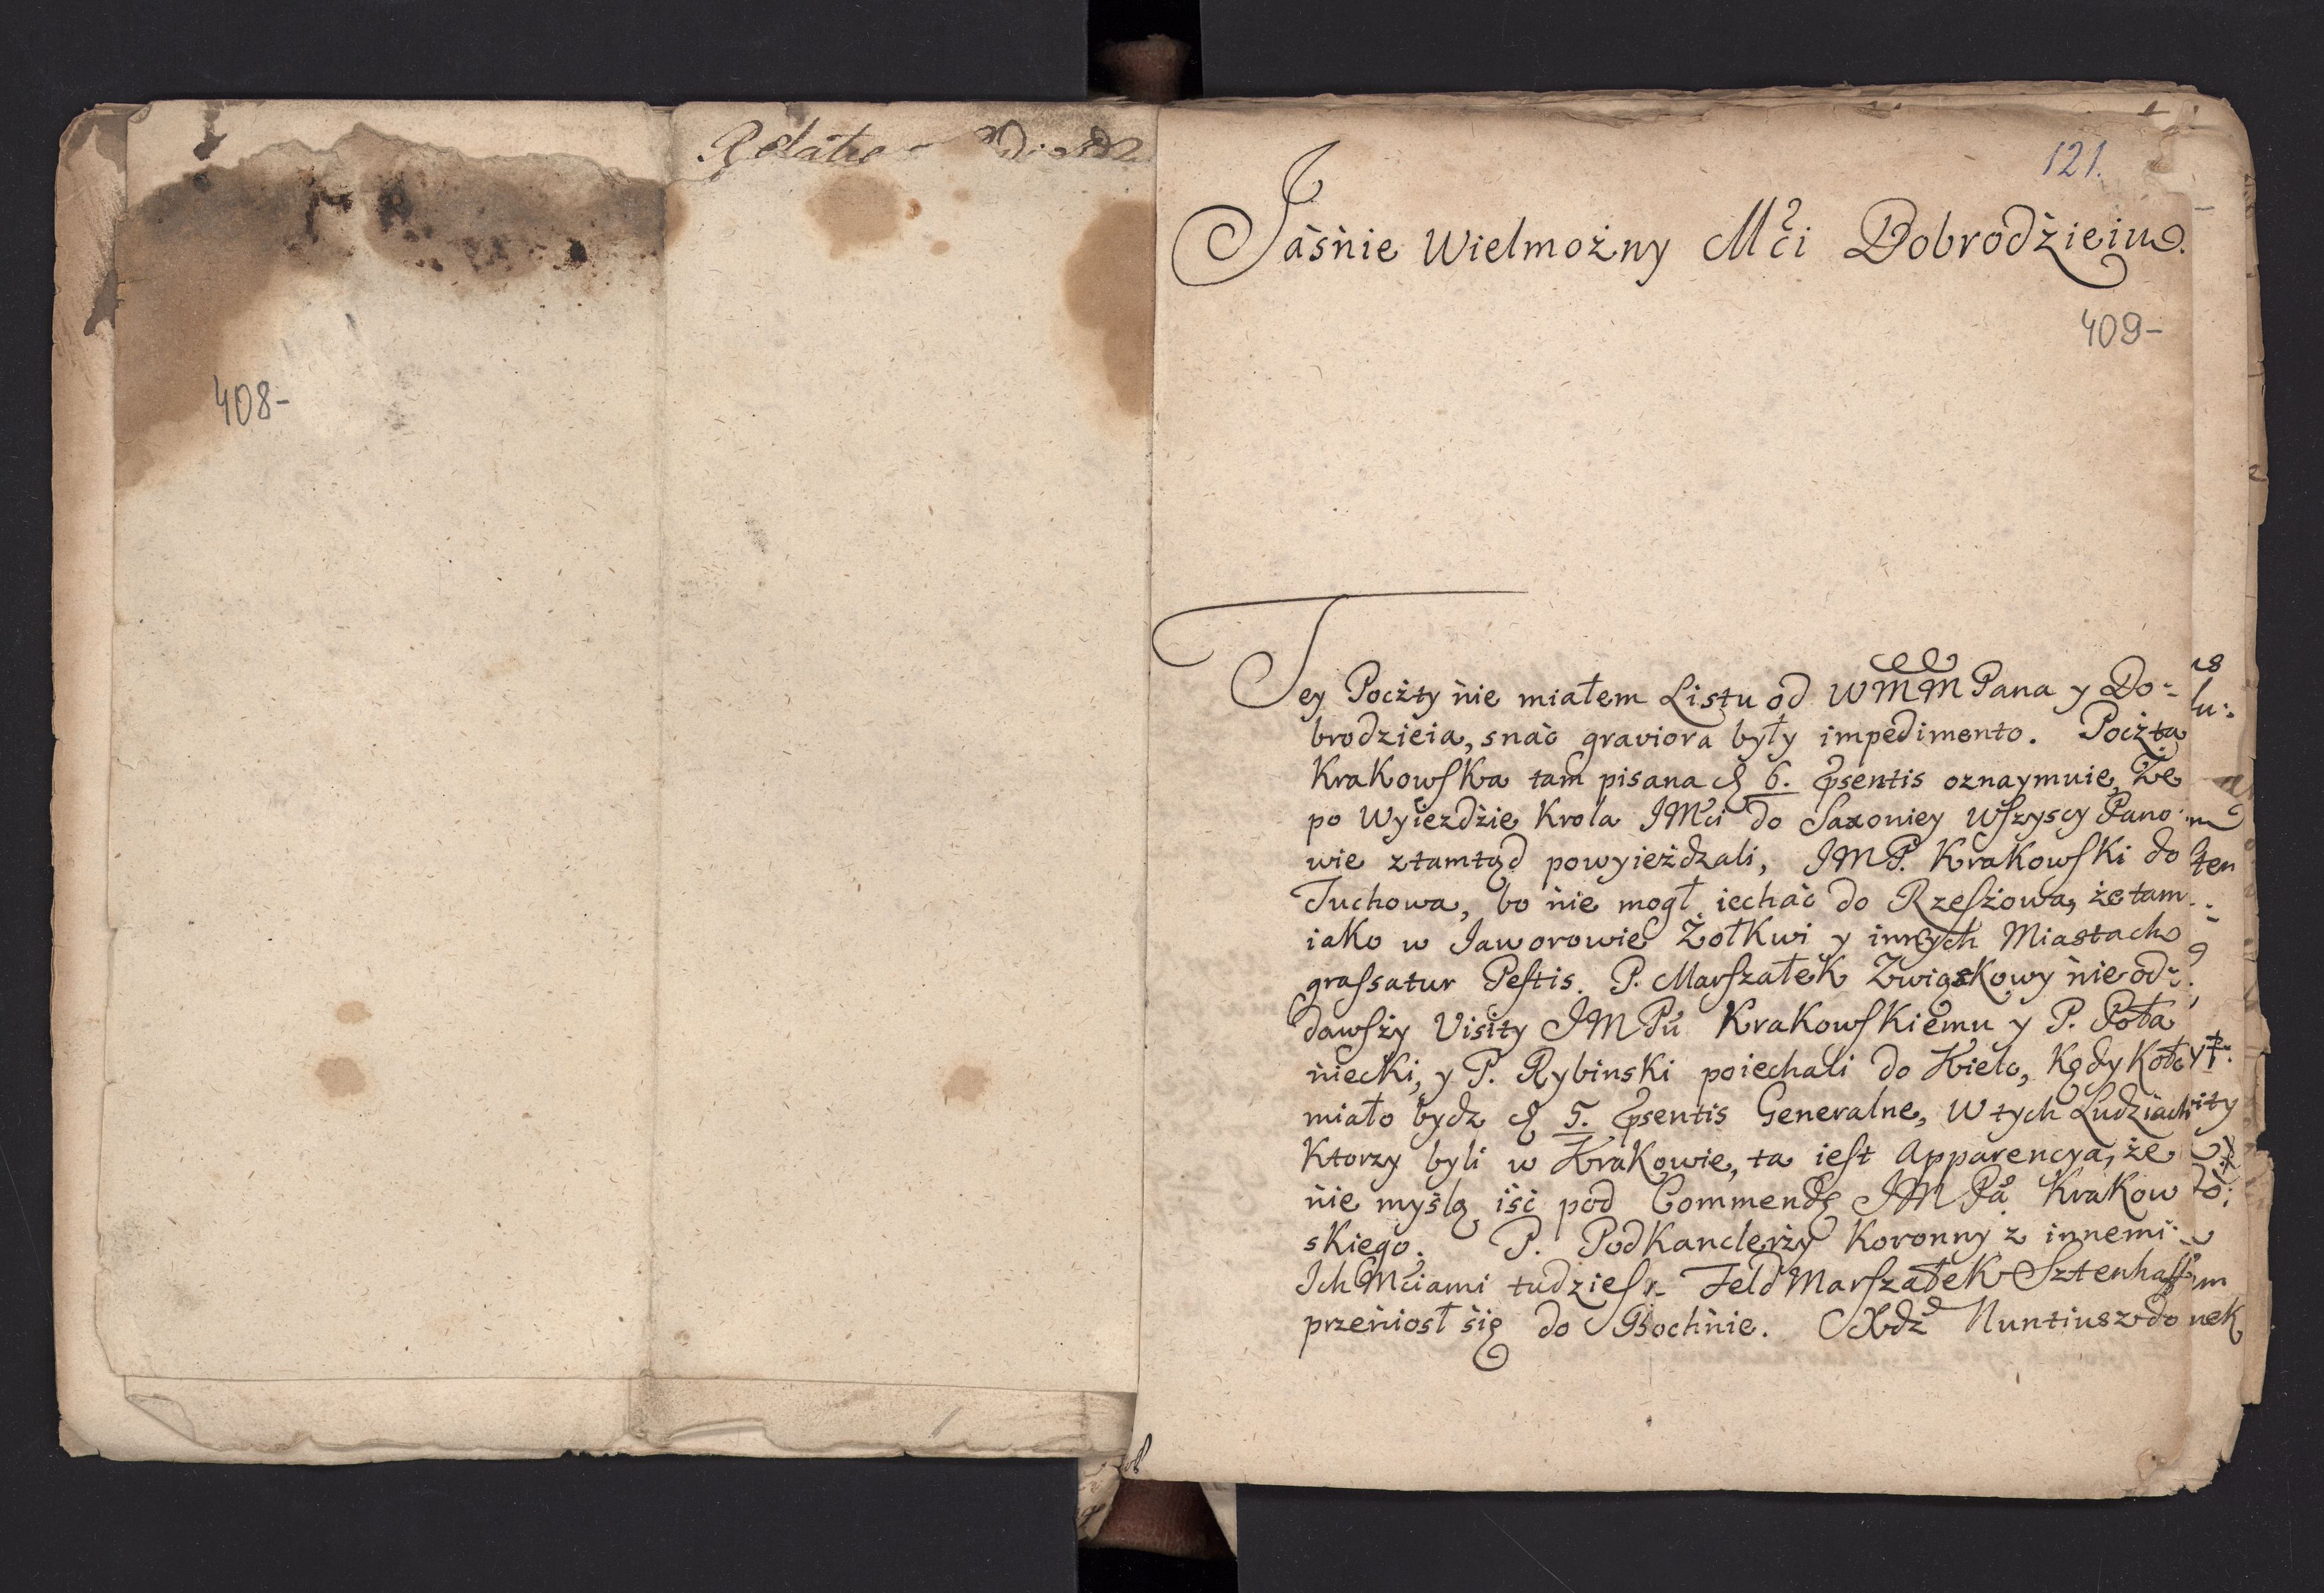 Relatio
408-
121.
Jaśnie Wielmożny Mći Dobrodżieiu.
409-
Tey Pocżty nie miałem Listu od WMM Pana y Do-
brodzieia, snać graviora były impedimento. Pocżta
Krakowska tam pisana d 6. Psentis oznaymuie, że
po Wyieździe Krola JMći do Saxoniey Wszyscy Pano-
wie ztamtąd powyieżdżali, JMP. Krakowski do
Tuchowa, bo nie mogł iechać do Rzeszowa, że tam
iako w Jaworowie Żołkwi y innych Miastach
grassatur Pestis. P. Marszałek Związkowy nie od-
dawszy Visity JMPu Krakowskiemu y P. Poła
niecki, y P. Rybinski poiechali do Kielc, kędy Koło
miało bydz d 5. Psentis Generalne, W tych Ludziach
Ktorzy byli w Krakowie, ta iest Apparencya, że
nie myślą iść pod Commendę JMPa Krakow
skiego. P. Podkanclerży Koronny z innemi
IchMćiami tudziesz Feld Marszałek Sztenhaff
przeniosł się do Bochnie. Xdz Nuntiusz do